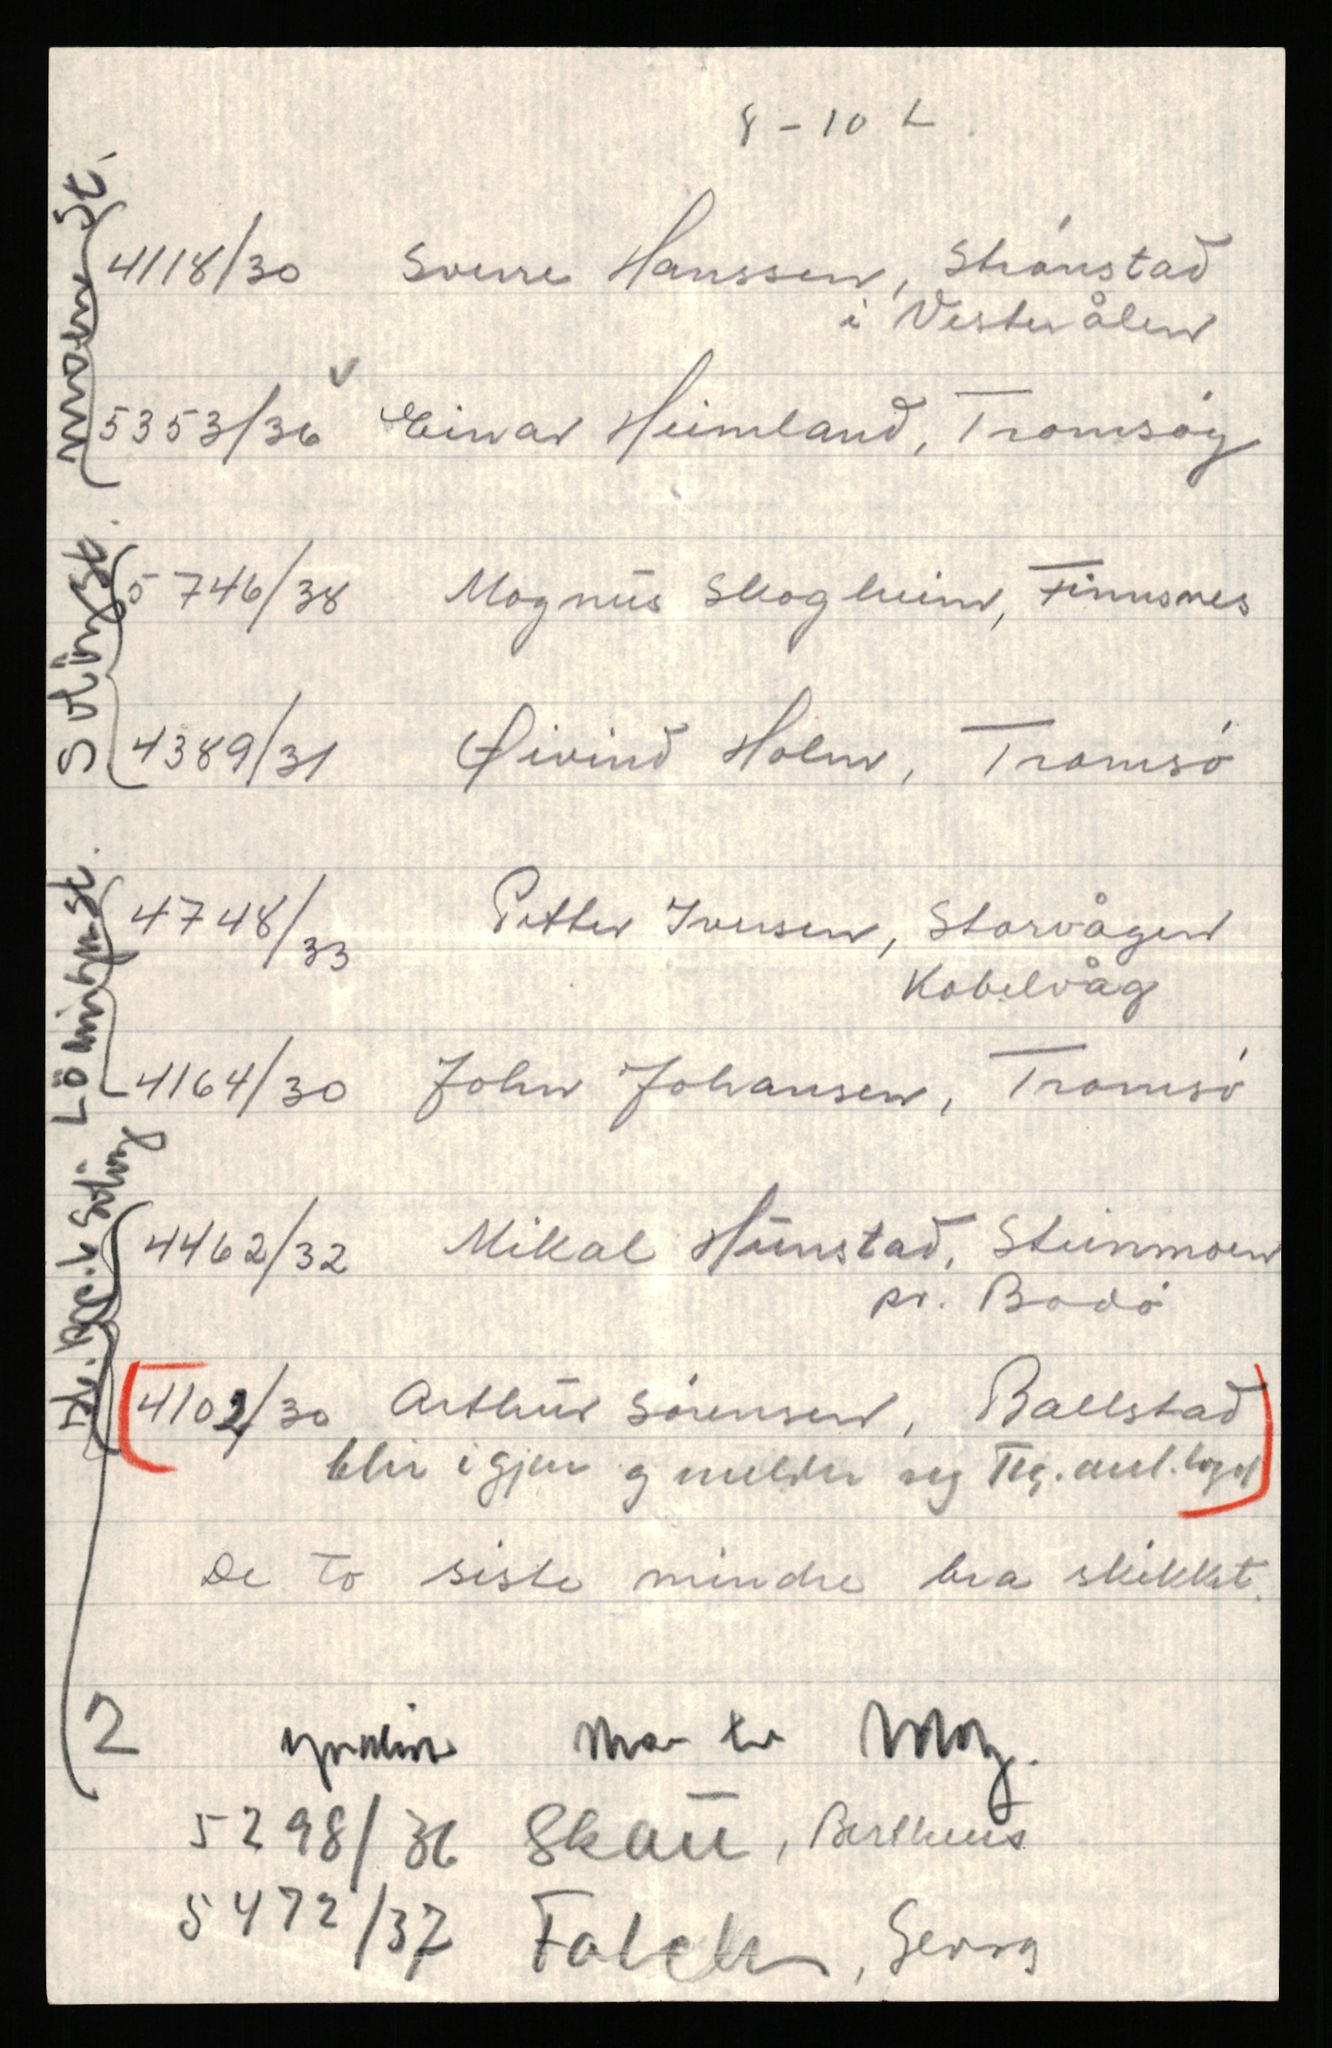 8 - 10 L.
4118/30 Sverre Hanssen, Straustad
i Vesterålen
5353/36 Einar Heimland, Tromsøy
Svlingst.
5746/38 Magnus Skogheim, Finnsnes
4389/31 Øivind Holm, Tromsø
4748/33 Petter Iversen, Storvågen
Kabelvåg
4164/30 John Johansen, Tromsø
4462/32 Mikal Hunstad, Steinmoen
pr. Bodø
4102/30 Arthur Sørensen, Ballstad
blir igjen og melder seg
De to siste mindre bra skikket.
2
5298/36 Skau, Bertheus
5472/37 Falch, Georg